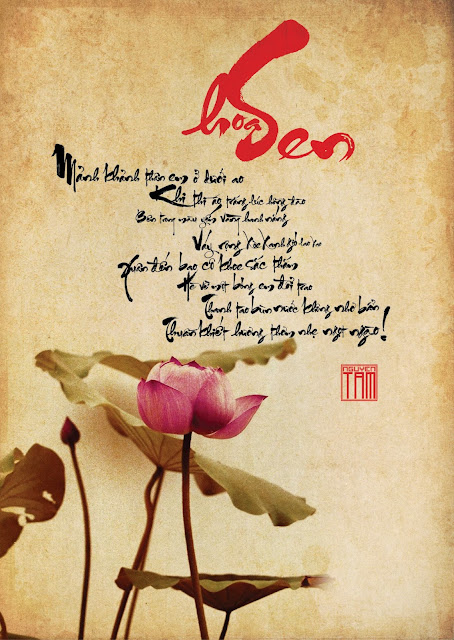 hoa Sen
Mảnh khảnh thân em ở dưới ao
Khi thì áo trắng lúc hồng đào
Bên trong màu yếm vàng hanh nắng
Váy rộng xòe xanh gió lao xao
Xuân đến bao cô khoe sắc thắm
Hè về một bóng em đổi trao
Thanh tao bùn nước không nhơ bẩn
Thuần khiết hương thơm nhẹ ngọt ngào!
NGUYEN
TAM